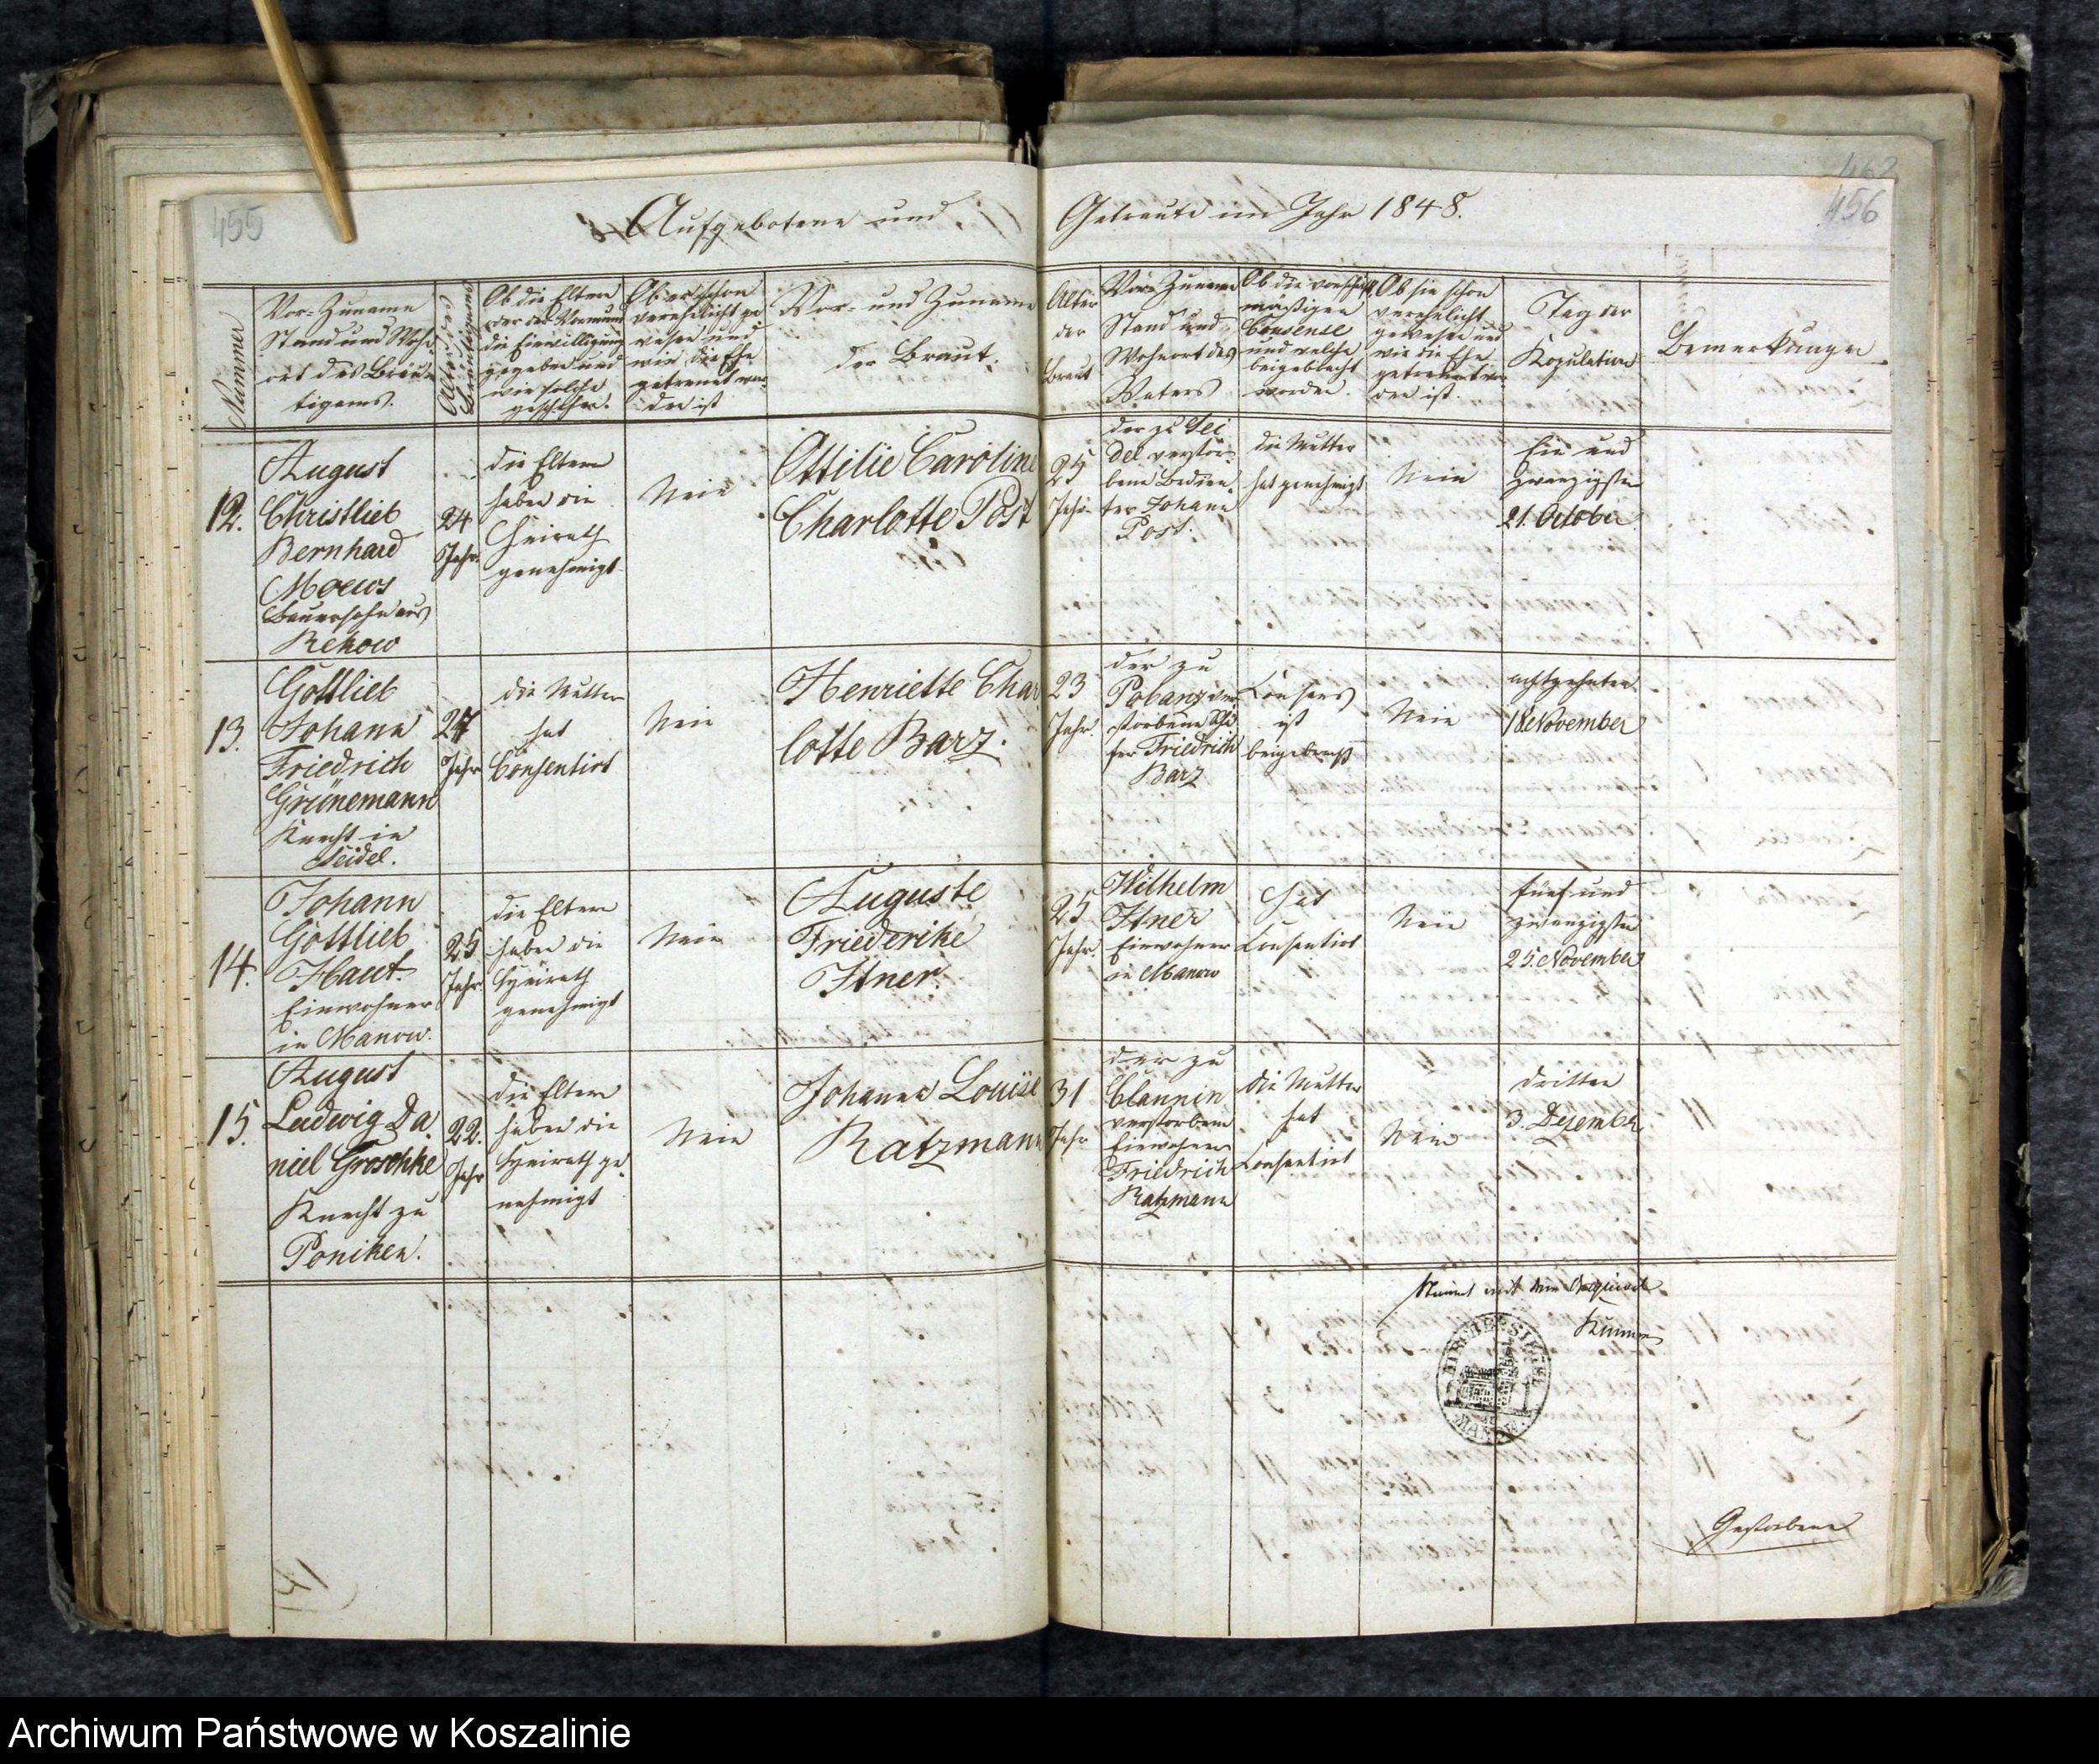 455
Aufgebotene und
Nummer
Vor- Zuname
Stand und Wohn
ort des Bräu
tigams.
Alter des
Bräutigams
Ob die Eltern
oder der Vormund
die Einwilligung
gegeben und
wie solche
geschehen.
Ob er schon
verehelicht ge
wesen und
wie die Ehe
getrennt wor-
den ist
Vor- und Zuname
der Braut.
12.
August
Christlieb
Bernhard
Moews
Bauersohn aus
Rekow
24
Jahr.
die Eltern
haben die
Heirath
genehmigt.
Nein
Ottilie Caroline
Charlotte Post
13.
Gottlieb
Johann
Friedrich
Grünemann
Knecht in
Seidel.
27
Jahr
die Mutter
hat
Consentirt
Nein
Henriette Char
lotte Barz.
14.
Johann
Gottlieb
Haut.
Einwohner
in Manow.
25
Jahr.
die Eltern
haben die
Heirath
genehmigt
Nein
Auguste
Friederike
Itner.
15.
August
Ludwig Da
niel Groschke
Knecht zu
Poniken.
22.
Jahr
die Eltern
haben die
Heirath ge
nehmigt
Nein
Johanna Louise
Ratzmann
462
456
Getraute im Jahr 1848.
Alter
der
Braut
Vor- Zuname
Stand und
Wohnort des
Vaters
Ob die vorschrift
mäßigen
Consense
und welche
beigebracht
worden.
Ob sie schon
verehelicht
gewesen und
wie die Ehe
getrennt wor
den ist.
Tag der
Kopulation
Bemerkungen
25
Jahr
der zu Sei
del verstor-
bene Bedien
ter Johann
Post.
die Mutter
hat genehmigt
Nein
Ein und
zwanzigsten
21. October
23
Jahr.
der zu
Pobanz ver
storbene Schä
fer Friedrich
Barz
Consens
ist
beigebracht
Nein
achtzehnten
18 November
25
Jahr.
Wilhelm
Itner
Einwohner
in Manow
Hat
Consentirt
Nein
fünf und
zwanzigsten
25. November
31
Jahr
der zu
Clannin
verstorbene
Einwohner
Friedrich
Ratzmann
die Mutter
hat
Consentirt
Nein
dritten
3. Dezember
Stimmt mit dem
KIRCHEN SIEGEL
Gestorbene
Archiwum Państwowe w Koszalinie